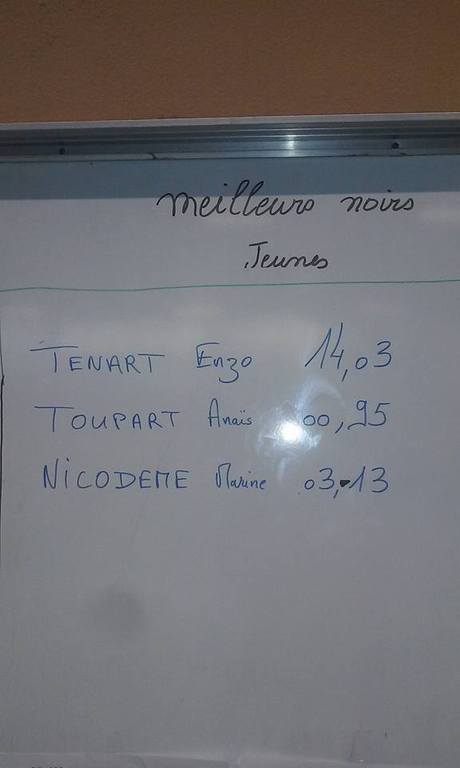 meilleurs noirs
Jeunes
TENART Enzo 14,03
TOUPART Anaïs 00,95
NICODEME Marine 03,13